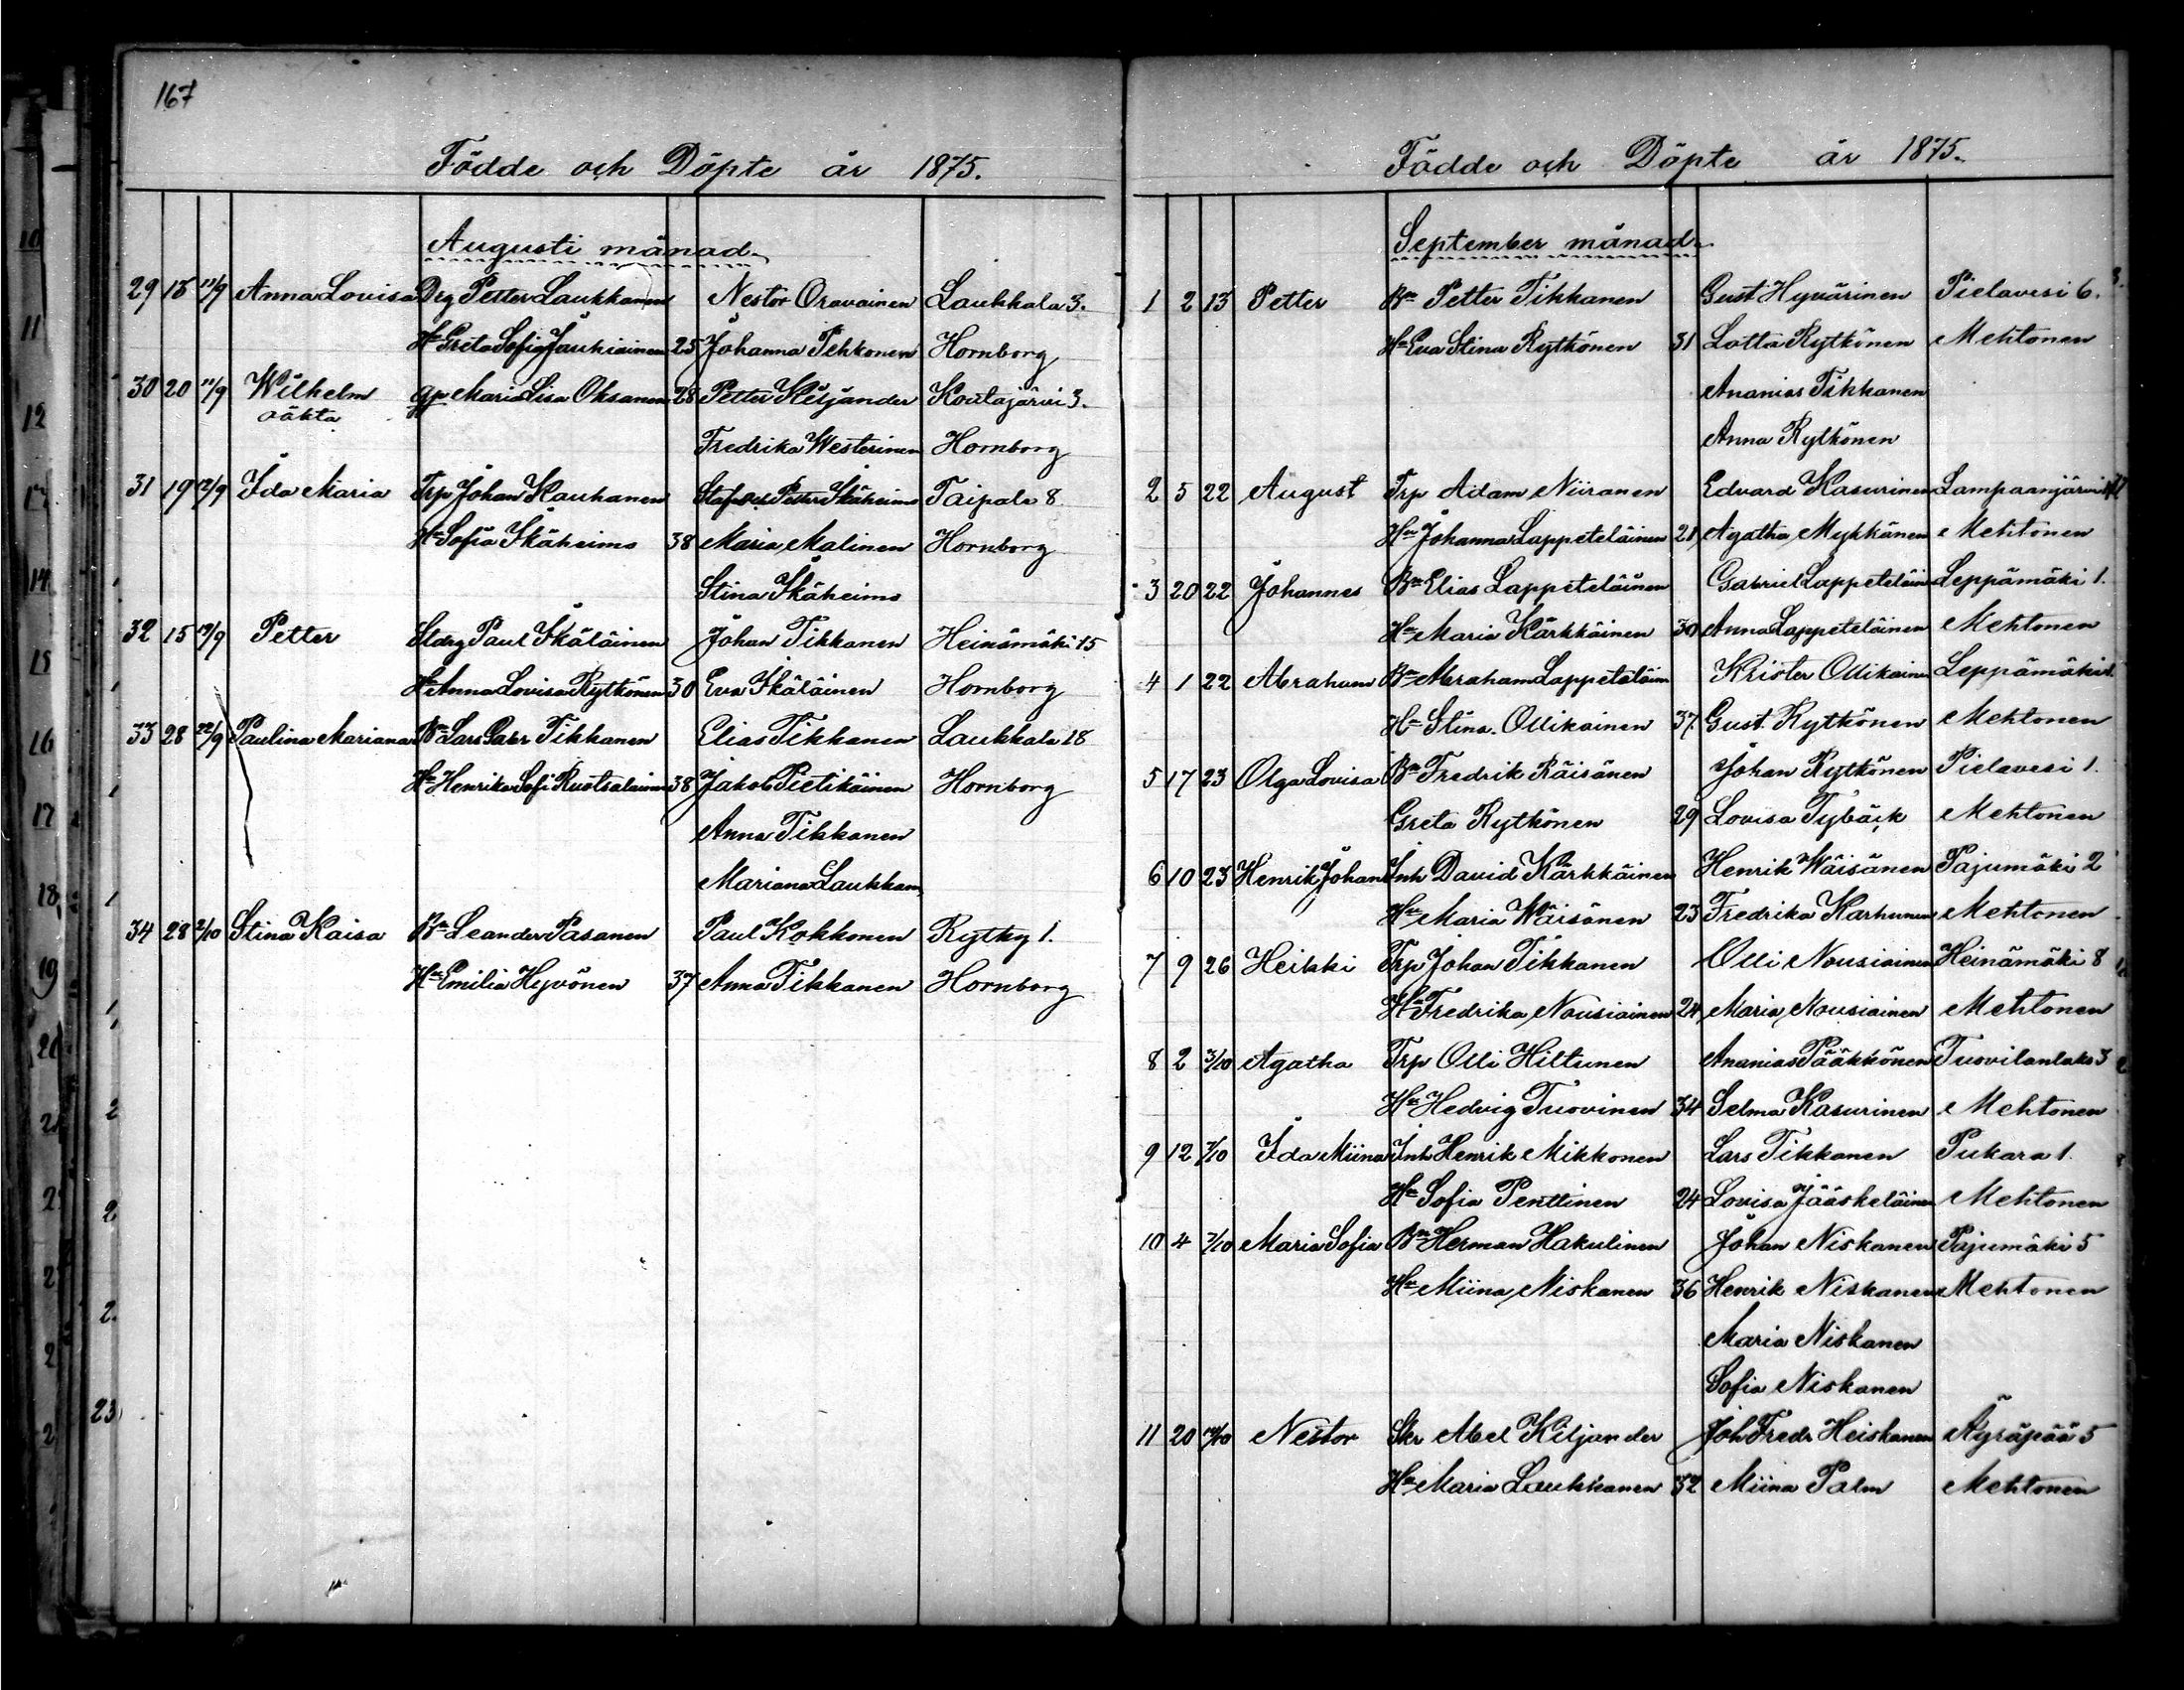 167
Födde och Döpte år 1875.
Augusti månad
29 15 11/9 Anna Lovisa Drg Petter Laukkanen Nestor Oravainen Laukkala 3.
Hu Greta Sofia Jauhiainen 25 Johanna Tehkonen Hornborg
30 20 11/9 Wilhelm gp Maria Lisa Oksanen 28 Petter Kiljander Koulajärvi 3.
oäkta
Fredrika Westerinen Hornborg
31 19 12/9 Ida Maria Trp Johan Kauhanen Petter Skäheims Taipale 8
Hu Sofia Skäheims 38 Maria Malinen Hornborg
Stina Skäheims
32 15 19/9 Petter Paul Ikäläinen Johan Tikkanen Heinämäki 15
Hu Anna Lovisa Rytkönen 30 Eva Ikäläinen Hornborg
33 28 22/9 Paulina Mariana Bn Lars Gabr Tikkanen Elias Tikkanen Laukkala 18
Hu Henrika Sofi Ruotsalainen 38 Jakob Pietikäinen Hornborg
Anna Tikkanen
Mariana Laukkan
34 28 2/10 Stina Kaisa Bn Leander Pasanen Paul Kokkonen Rytky 1.
Hu Emilia Hyvönen 37 Anna Tikkanen Hornborg
Födde och Döpte år 1875.
September månad
1 2 13 Petter Bn Petter Tikkanen Gust Hyvärinen Pielavesi 6.
Hu Eva Stina Rytkönen 31 Lotta Rytkönen Mehtonen
Ananias Tikkanen
Anna Rytkönen
2 5 22 August Trp Adam Niiranen Edvard Kasurinen Lampaanjärvi
Hu Johanna Lappeteläinen 21 Agatha Mykkänen Mehtonen
3 20 22 Johannes Bn Elias Lappeteläinen Gabriel Lappeteläin Leppämäki 1.
Hu Maria Kärkkäinen 30 Anna Lappeteläinen Mehtonen
4 1 22 Abraham Bn Abraham Lappeteläin Krister Ollikainen Leppämäki
Hu Stina Ollikainen 37 Gust. Rytkönen Mehtonen
5 17 23 Olga Lovisa Bn Fredrik Räisänen Johan Rytkönen Pielavesi 1.
Greta Rytkönen 29 Lovisa Tybäck Mehtonen
6 10 23 Henrik Johan Inh David Kärkkäinen Henrik Wäisänen Pajumäki 2
Hu Maria Wäisänen 23 Fredrika Karhunen Mehtonen
7 9 26 Heikki Trp Johan Tikkanen Olli Nousiainen Heinämäki 8
Hu Fredrika Nousiainen 24 Maria Nousiainen Mehtonen
8 2 3/10 Agatha Trp Olli Hiltunen Ananias Pääkkönen Tuovilanlaks 3
Hu Hedvig Tuovinen 34 Selma Kasurinen Mehtonen
9 12 7/10 Ida Miina Inh Henrik Mikkonen Lars Tikkanen Pukara 1.
Hu Sofia Penttinen 24 Lovisa Jääskeläinen Mehtonen
10 4 7/10 Maria Sofia Bn Herman Hakulinen Johan Niskanen Pajumäki 5
Hu Miina Niskanen 36 Henrik Niskanen Mehtonen
Maria Niskanen
Sofia Niskanen
11 20 Nestor Skr Abel Kiljander Joh Fredr Heiskanen Äyräpää 5
Hu Maria Laukkanen 32 Miina Palm Mehtonen